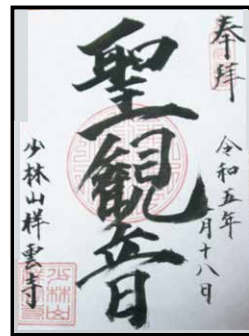 奉拝
令和五年
月十八日
聖観音
少林山祥雲寺
少林山